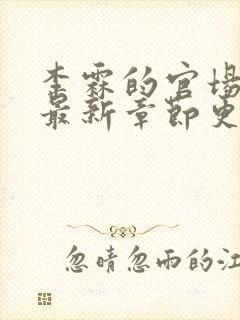 李霖的官场
最新章节更
忽晴忽雨的江